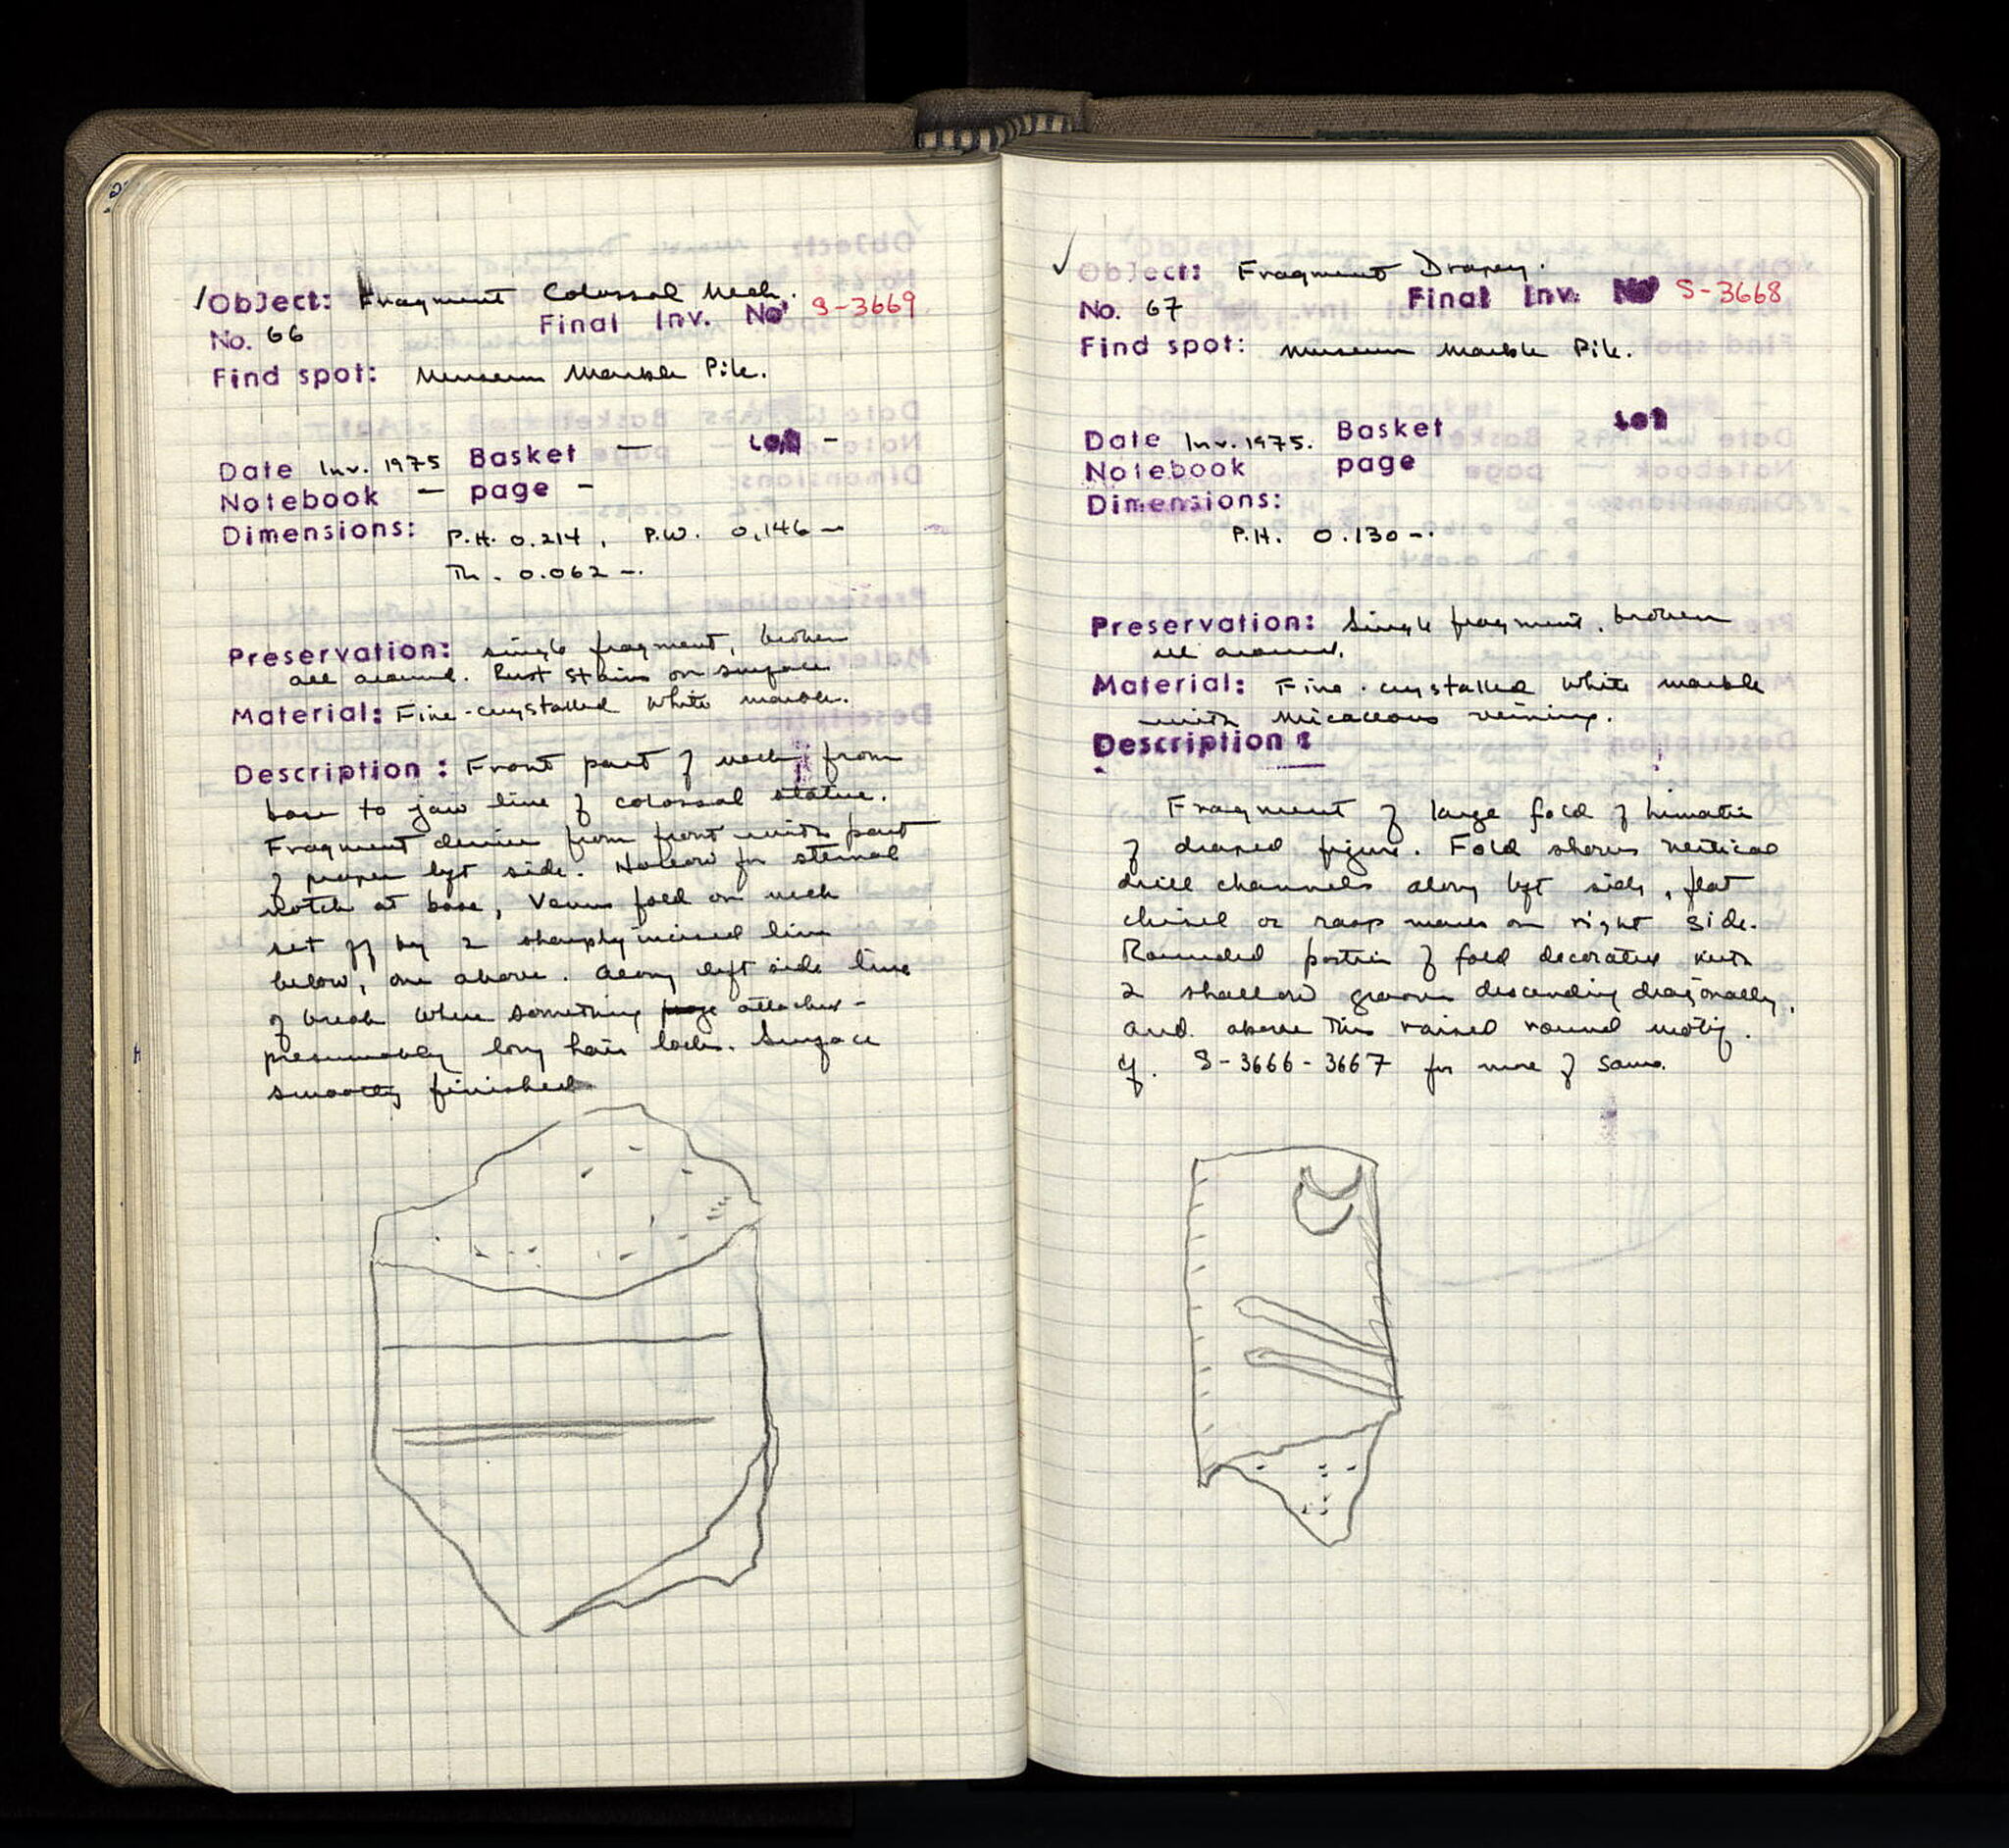 Object: Fragment Colossal Neck.
No. 66 Final Inv. No S-3669
Find spot: Museum Marble Pile.
Date Inv. 1975 Basket — Lot -
Notebook - page -
Dimensions: P.H. 0.214, P.W. 0.146 -
Th. 0.062 -.
Preservation: single fragment, broken
all around. Rust stains on surface
Material: Fine-crystalled white marble.
Description: Front part of neck from
base to jaw line of colossal statue.
Fragment derives from front with part
of proper left side. Hollow for sternal
notch at base, Venus fold on neck
set off by 2 sharply incised lines
below, one above. Along left side line
of break where something attached -
presumably long hair locks. Surface
smoothly finished
Object: Fragment Drapery.
No. 67 Final Inv. No S-3668
Find spot: Museum Marble Pile.
Date Inv. 1975. Basket Lot
Notebook page
Dimensions:
P.H. 0.130 -.
Preservation: Single fragment, broken
all around.
Material: Fine-crystalled white marble
with micaceous veining.
Description:
Fragment of large fold of himation
of draped figure. Fold shows vertical
drill channels along left side, flat
chisel or rasp marks on right side.
Rounded portion of fold decorated with
2 shallow grooves descending diagonally,
and above this raised round motif.
cf. S-3666-3667 for more of same.